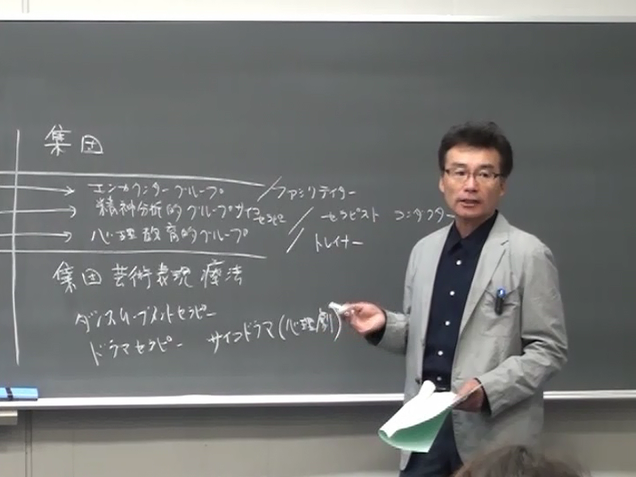 集団
エンカウンターグループ / ファシリテイター
精神分析的グループサイコセラピ / セラピスト コンダクター
心理教育的グループ / トレイナー
集団芸術表現療法
ダンスムーブメントセラピー
ドラマセラピー サイコドラマ(心理劇)